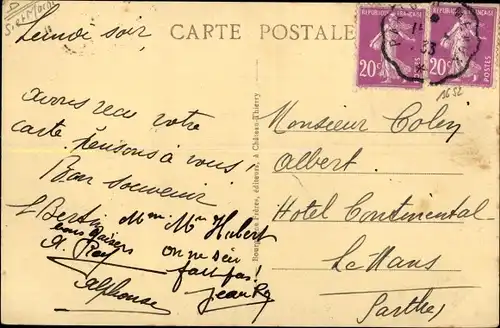 Lundi soir
CARTE POSTALE
RÉPUBLIQUE FRANÇAISE
20c
POSTES
20c
POSTES
33
1652
avons reçu votre
carte pensons à vous !
Bon souvenir
L Berth
Mme Mr Hubert
bons Baisers
on ne s'en
fait pas !
Alphonse
Jean
Bourgogne Frères, éditeurs, à Château-Thierry
Monsieur Colin
Albert
Hotel Continental
Le Mans
Sarthe